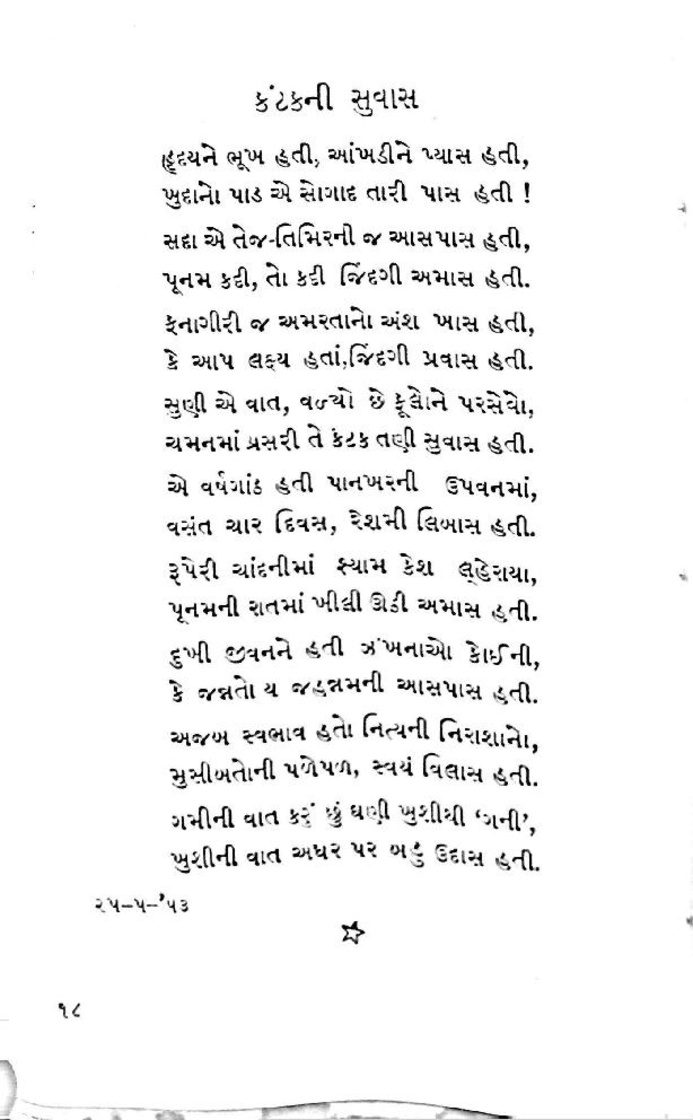 કંટકની સુવાસ
હૃદયને ભૂખ હતી, આંખડીને પ્યાસ હતી,
ખુદાનો પાડ એ સોગાદ તારી પાસ હતી !
સદા એ તેજ-તિમિરની જ આસપાસ હતી,
પૂનમ કદી, તો કદી જિંદગી અમાસ હતી.
ફનાગીરી જ અમરતાનો અંશ ખાસ હતી,
કે આપ લક્ષ્ય હતાં, જિંદગી પ્રવાસ હતી.
સુણી એ વાત, વળ્યો છે ફૂલોને પરસેવો,
ચમનમાં પ્રસરી તે કંટક તણી સુવાસ હતી.
એ વર્ષગાંઠ હતી પાનખરની ઉપવનમાં,
વસંત ચાર દિવસ, રેશમી લિબાસ હતી.
રૂપેરી ચાંદનીમાં શ્યામ કેશ લ્હેરાયા,
પૂનમની રાતમાં ખીલી ઊઠી અમાસ હતી.
દુખી જીવનને હતી ઝંખનાઓ કોઈની,
કે જન્નતો ય જહન્નમની આસપાસ હતી.
અજબ સ્વભાવ હતો નિત્યની નિરાશાનો,
મુસીબતોની પળેપળ, સ્વયં વિલાસ હતી.
ગમીની વાત કરું છું ઘણી ખુશીથી ‘ગની’,
ખુશીની વાત અધર પર બહુ ઉદાસ હતી.
૨૫–૫–’૫૩
૧૮